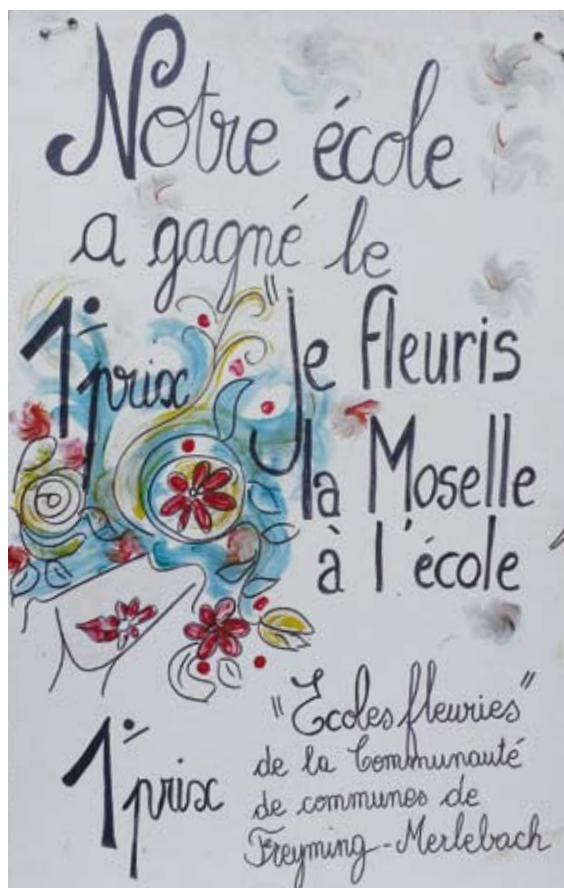 Notre école
a gagné le
1er prix "Je fleuris
la Moselle
à l'école
1er prix "Ecoles fleuries"
de la Communauté
de communes de
Freyming-Merlebach